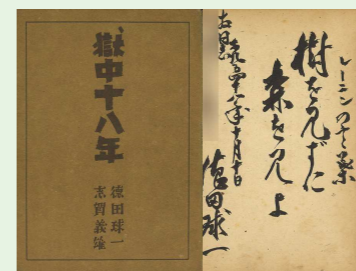 獄中十八年
徳田球一
志賀義雄
レーニンの言葉
樹を見ずに
森を見よ
徳田球一